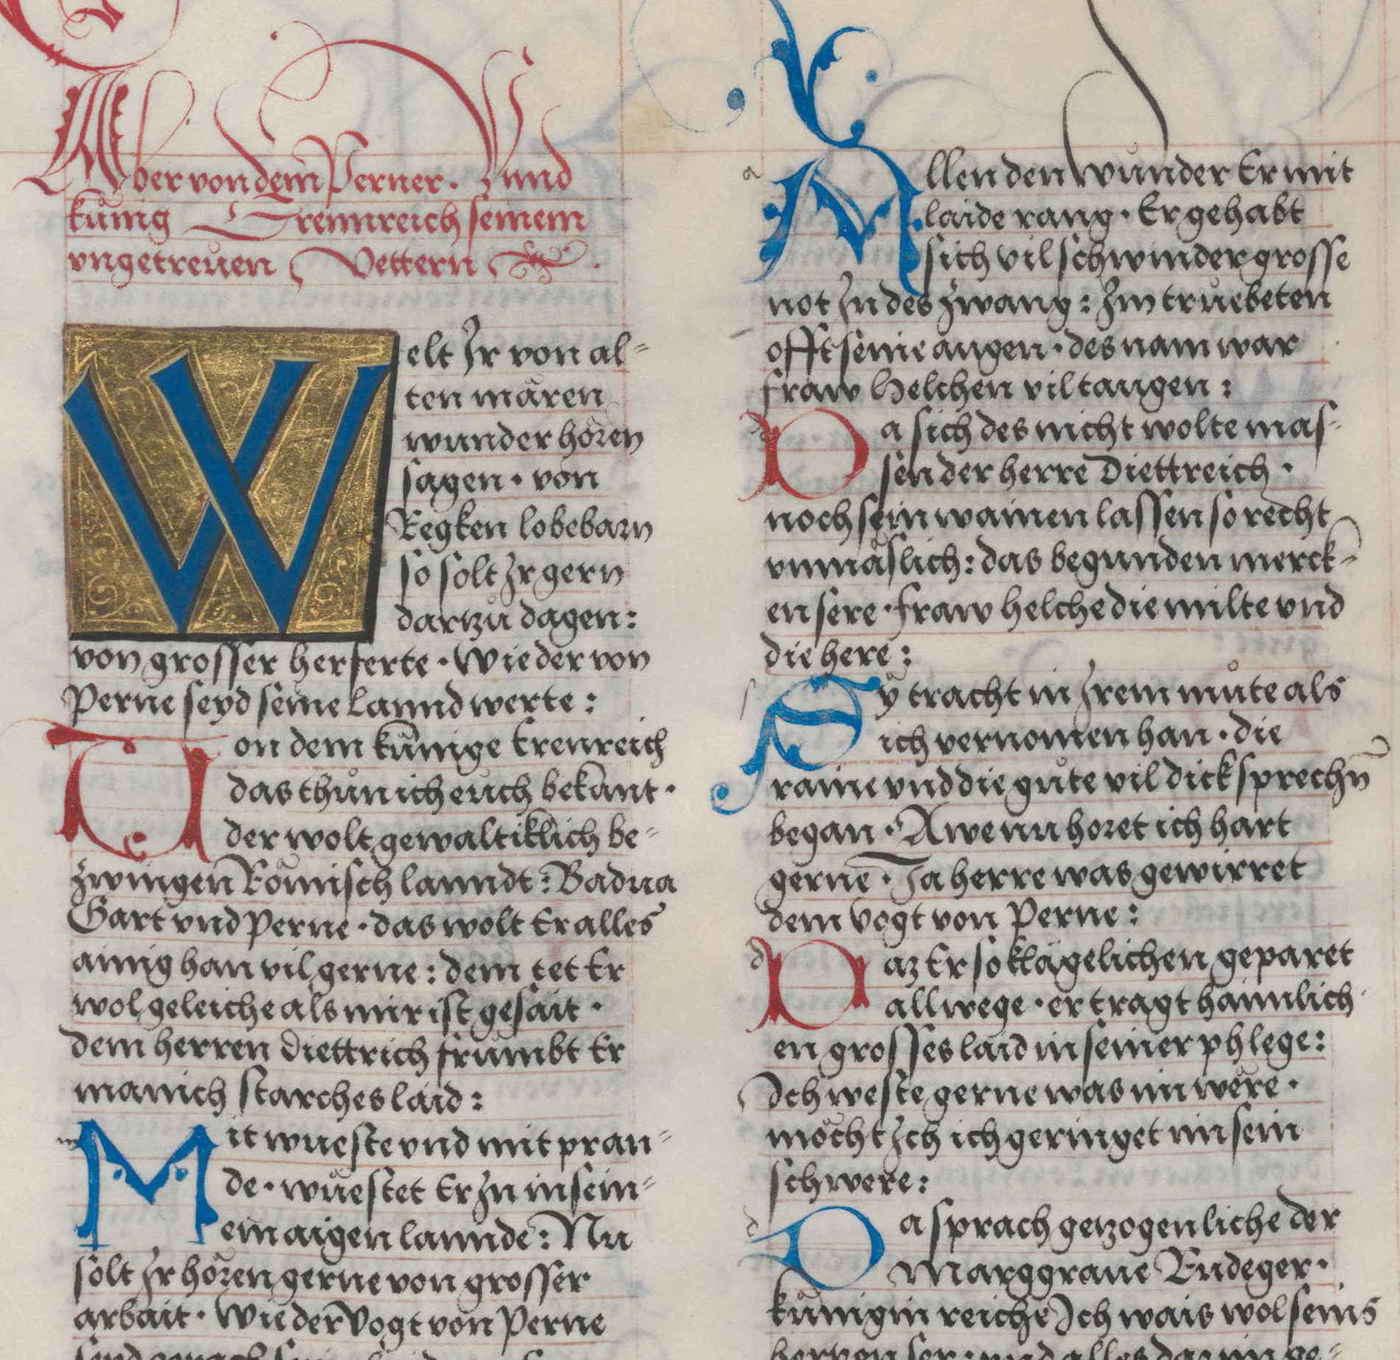 Aber von dem Perner. Vund
kunig Ermreich seinem
vngetreuen Vettern
Welt Ir von al-
ten mären
wunder hören
sagen · von
Regken lobebarn
so solt Ir gern
dartzů dagen:
von grosser herferte · Wie der von
Perne seyd seine Lannd werte:
Von dem künige Erenreich
das thůn ich euch bekant ·
der wolt gewaltiklich be-
zwingen Römisch lanndt: Badua
Gart vnd Perne · das wolt Er alles
ainig han vil gerne: dem tet Er
wol geleiche als mir ist gesait ·
dem herren Diettrich frumbt Er
manich starches laid:
Mit wueste vnd mit pran-
de · wüestet Er In in sein-
em aigen lannde: Nu
solt Ir hören gerne von grosser
arbait · Wie der Vogt von Perne
Allen den wunder Er mit
laide rang · Er gehabt
sich vil schwinder grosse
not In des zwang: Im truebeten
offt seine augen · des nam war
fraw Helchen vil taugen:
Da sich des nicht wolte mas-
sen der herre Diettreich ·
noch sein wainen lassen so recht
vnmäslich: das begunden merck-
en sere · fraw helche die milte vnd
die here:
Sy tracht in Irem můte als
ich vernomen han · die
raine vnd die gůte vil dick sprechñ
began · Awe nu horet ich hart
gerne · Ja herre was gewirret
dem vogt von Perne:
Daz Er so klägelichen geparet
allwege · er tragt haimlich
en grosses laid in seiner phlege:
Ich weste gerne was im were ·
möcht Ich ich geringet im sein
schwere:
Da sprach getzogenliche der
Marggraue Rudeger ·
künigin reiche Ich wais wol seins